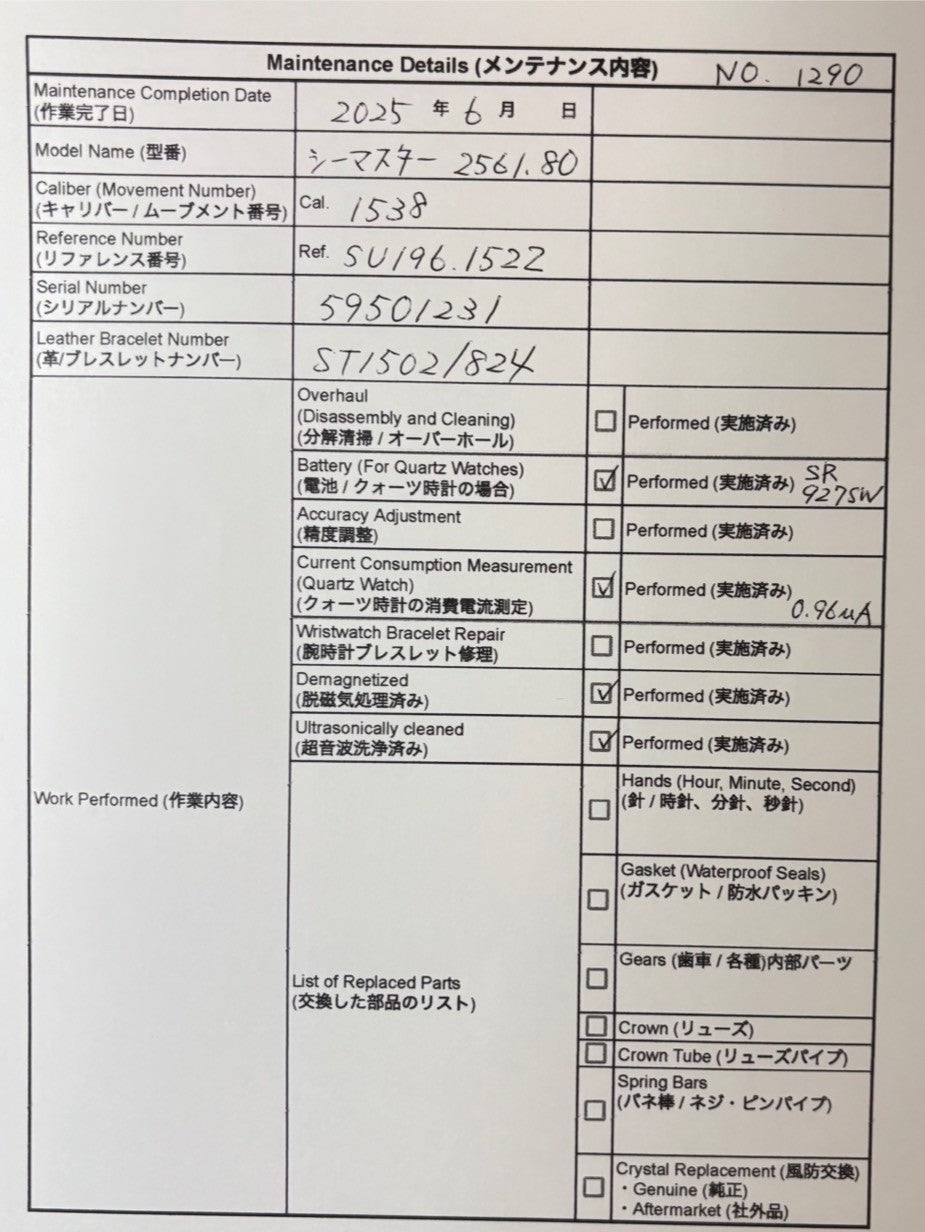 Maintenance Details (メンテナンス内容) NO. 1290
Maintenance Completion Date
(作業完了日)
2025 年 6 月 日
Model Name (型番)
シーマスター 2561.80
Caliber (Movement Number)
(キャリバー / ムーブメント番号)
Cal. 1538
Reference Number
(リファレンス番号)
Ref. SU196.1522
Serial Number
(シリアルナンバー)
59501231
Leather Bracelet Number
(革/ブレスレットナンバー)
ST1502/824
Work Performed (作業内容)
Overhaul
(Disassembly and Cleaning)
(分解清掃 / オーバーホール)
Performed (実施済み)
Battery (For Quartz Watches)
(電池 / クォーツ時計の場合)
Performed (実施済み) SR
927SW
Accuracy Adjustment
(精度調整)
Performed (実施済み)
Current Consumption Measurement
(Quartz Watch)
(クォーツ時計の消費電流測定)
Performed (実施済み)
0.96uA
Wristwatch Bracelet Repair
(腕時計ブレスレット修理)
Performed (実施済み)
Demagnetized
(脱磁気処理済み)
Performed (実施済み)
Ultrasonically cleaned
(超音波洗浄済み)
Performed (実施済み)
List of Replaced Parts
(交換した部品のリスト)
Hands (Hour, Minute, Second)
(針 / 時針、分針、秒針)
Gasket (Waterproof Seals)
(ガスケット / 防水パッキン)
Gears (歯車 / 各種)内部パーツ
Crown (リューズ)
Crown Tube (リューズパイプ)
Spring Bars
(バネ棒 / ネジ・ピンパイプ)
Crystal Replacement (風防交換)
・Genuine (純正)
・Aftermarket (社外品)